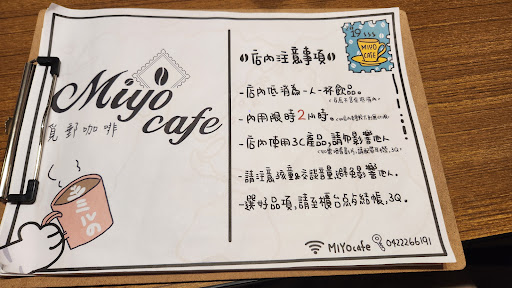 Miyo
cafe
覓郵咖啡
19
MIYO
CAFE
店內注意事項
-店內低消為一人一杯飲品。
-內用限時2小時。
-店內使用3C產品,請勿影響他人
-請注意孩童&交談音量,避免影響他人。
-選好品項,請至櫃台點餐結帳,3Q。
MIYOcafe
0422266191